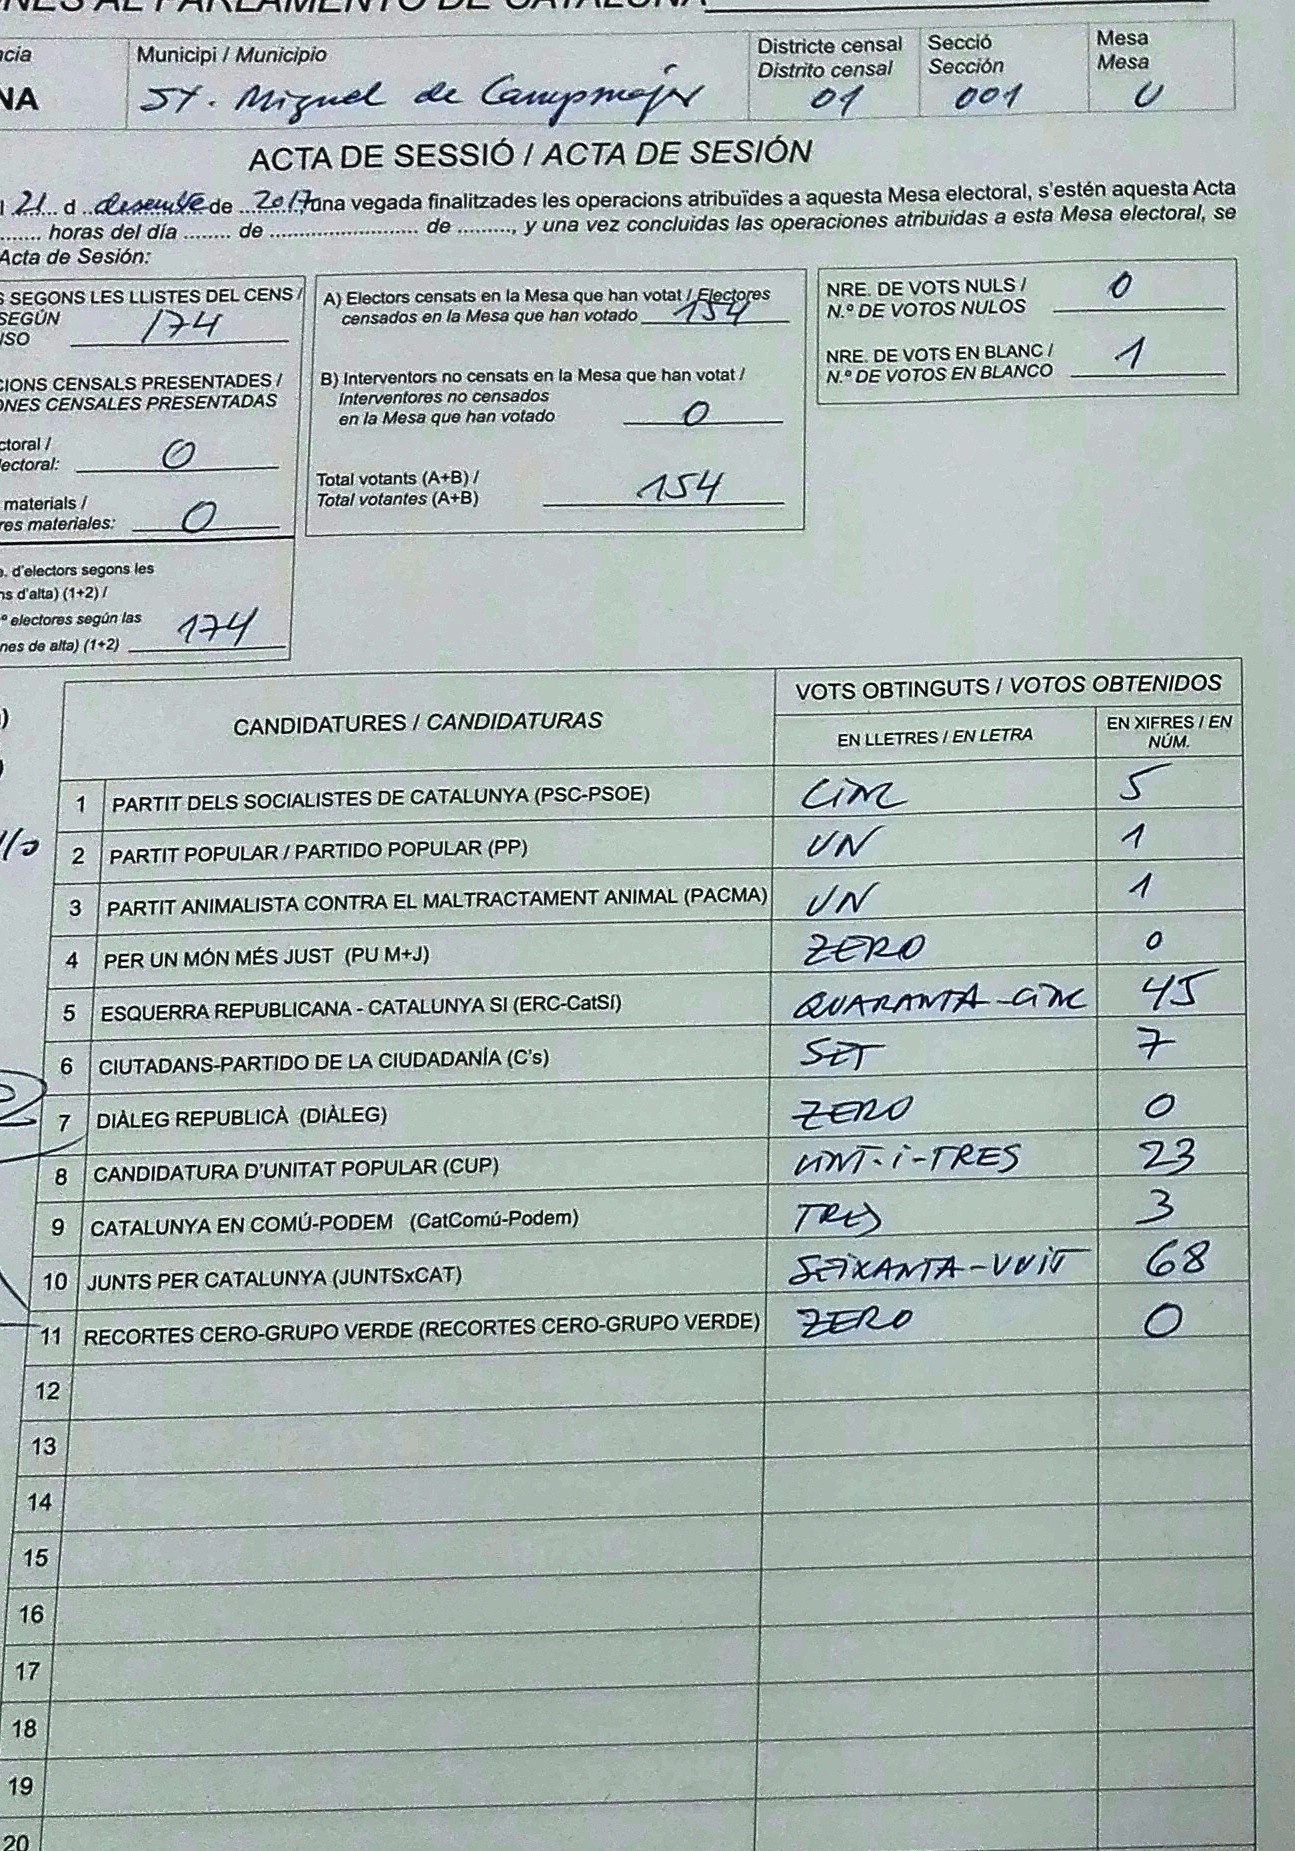 NES AL PARLAMENTO DE CATALUÑA
ncia
NA
Municipi / Municipio
St. Miquel de Campmajor
Districte censal
Distrito censal
01
Secció
Sección
001
Mesa
Mesa
U
ACTA DE SESSIÓ / ACTA DE SESIÓN
l 21 d desembre de 2017 una vegada finalitzades les operacions atribuïdes a aquesta Mesa electoral, s'estén aquesta Acta
........ horas del día ........ de .......................... de ........., y una vez concluidas las operaciones atribuidas a esta Mesa electoral, se
Acta de Sesión:
S SEGONS LES LLISTES DEL CENS /
SEGÚN
NSO 174
CIONS CENSALS PRESENTADES /
ONES CENSALES PRESENTADAS
ctoral /
lectoral: 0
materials /
res materiales: 0
e. d'electors segons les
ns d'alta) (1+2) /
º electores según las
nes de alta) (1+2) 174
A) Electors censats en la Mesa que han votat / Electores
censados en la Mesa que han votado 154
B) Interventors no censats en la Mesa que han votat /
Interventores no censados
en la Mesa que han votado 0
Total votants (A+B) /
Total votantes (A+B) 154
NRE. DE VOTS NULS /
N.º DE VOTOS NULOS 0
NRE. DE VOTS EN BLANC /
N.º DE VOTOS EN BLANCO 1
CANDIDATURES / CANDIDATURAS
VOTS OBTINGUTS / VOTOS OBTENIDOS
EN LLETRES / EN LETRA
EN XIFRES / EN
NÚM.
1 PARTIT DELS SOCIALISTES DE CATALUNYA (PSC-PSOE) CINC 5
2 PARTIT POPULAR / PARTIDO POPULAR (PP) UN 1
3 PARTIT ANIMALISTA CONTRA EL MALTRACTAMENT ANIMAL (PACMA) UN 1
4 PER UN MÓN MÉS JUST (PU M+J) ZERO 0
5 ESQUERRA REPUBLICANA - CATALUNYA SI (ERC-CatSí) QUARANTA-CINC 45
6 CIUTADANS-PARTIDO DE LA CIUDADANÍA (C's) SET 7
7 DIÀLEG REPUBLICÀ (DIÀLEG) ZERO 0
8 CANDIDATURA D'UNITAT POPULAR (CUP) VINT-i-TRES 23
9 CATALUNYA EN COMÚ-PODEM (CatComú-Podem) TRES 3
10 JUNTS PER CATALUNYA (JUNTSxCAT) SEIXANTA-VUIT 68
11 RECORTES CERO-GRUPO VERDE (RECORTES CERO-GRUPO VERDE) ZERO 0
12
13
14
15
16
17
18
19
20